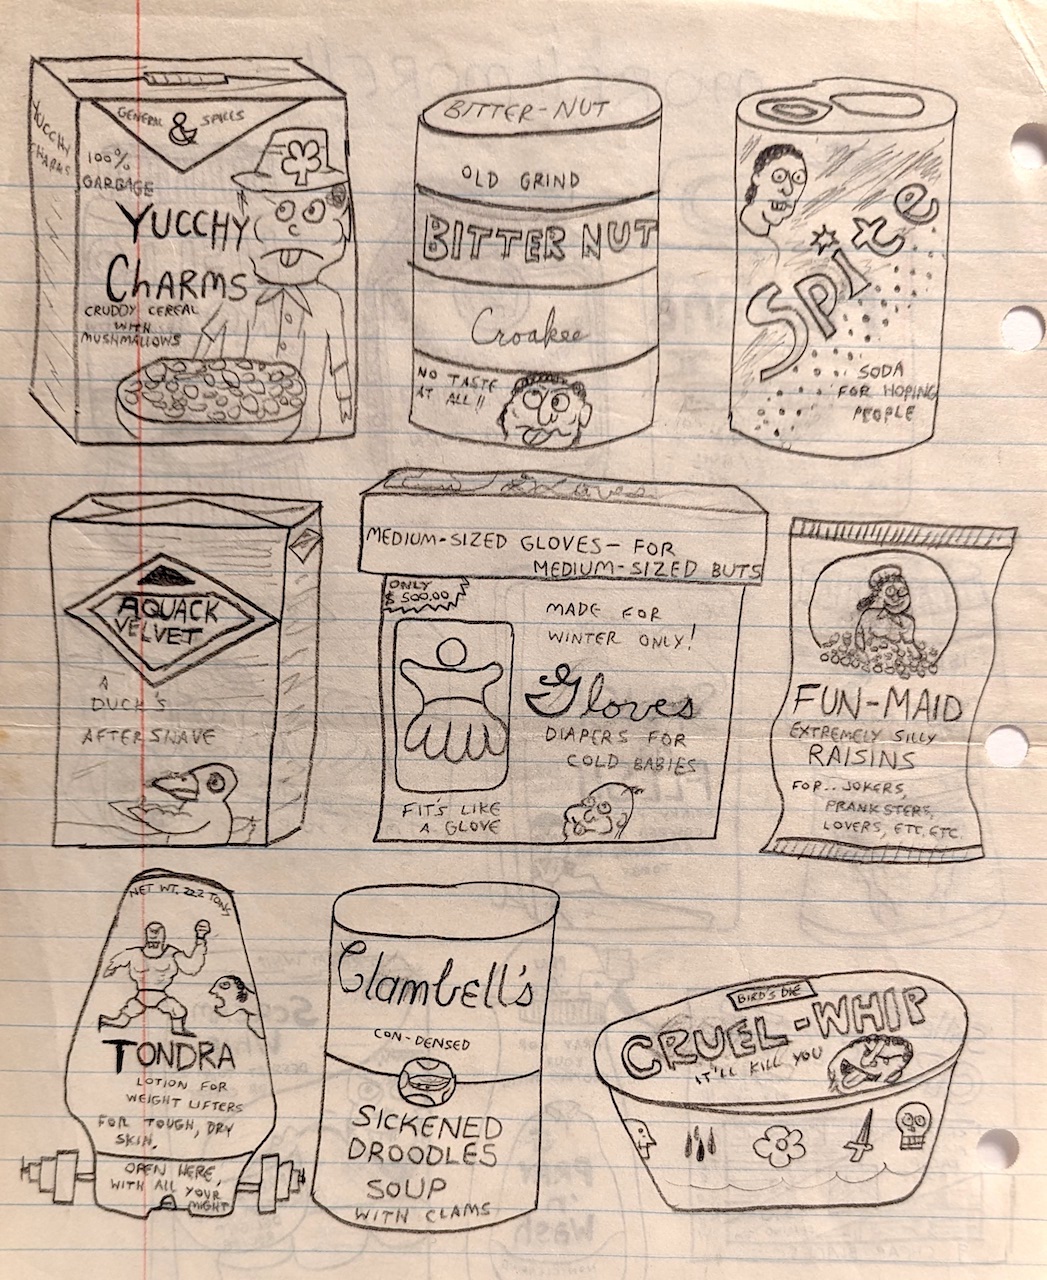 GENERAL & SPILLS
YUCCHY
CHARMS
100%
GARBAGE
YUCCHY
CHARMS
CRUDDY CEREAL
WITH
MUSHMALLOWS
BITTER-NUT
OLD GRIND
BITTER NUT
Croakee
NO TASTE
AT ALL!!
SPIXE
SODA
FOR HOPING
PEOPLE
AQUACK
VELVET
A
DUCK'S
AFTERSHAVE
MEDIUM-SIZED GLOVES- FOR
MEDIUM-SIZED BUTS
ONLY
$500.00
MADE FOR
WINTER ONLY!
Gloves
DIAPERS FOR
COLD BABIES
FIT'S LIKE
A GLOVE
FUN-MAID
EXTREMELY SILLY
RAISINS
FOR.. JOKERS,
PRANKSTERS,
LOVERS, ETC. ETC.
NET WT. 222 TONS
TONDRA
LOTION FOR
WEIGHT LIFTERS
FOR TOUGH, DRY
SKIN.
OPEN HERE,
WITH ALL YOUR
MIGHT
Clambell's
CON-DENSED
SICKENED
DROODLES
SOUP
WITH CLAMS
BIRD'S DIE
CRUEL-WHIP
IT'LL KILL YOU